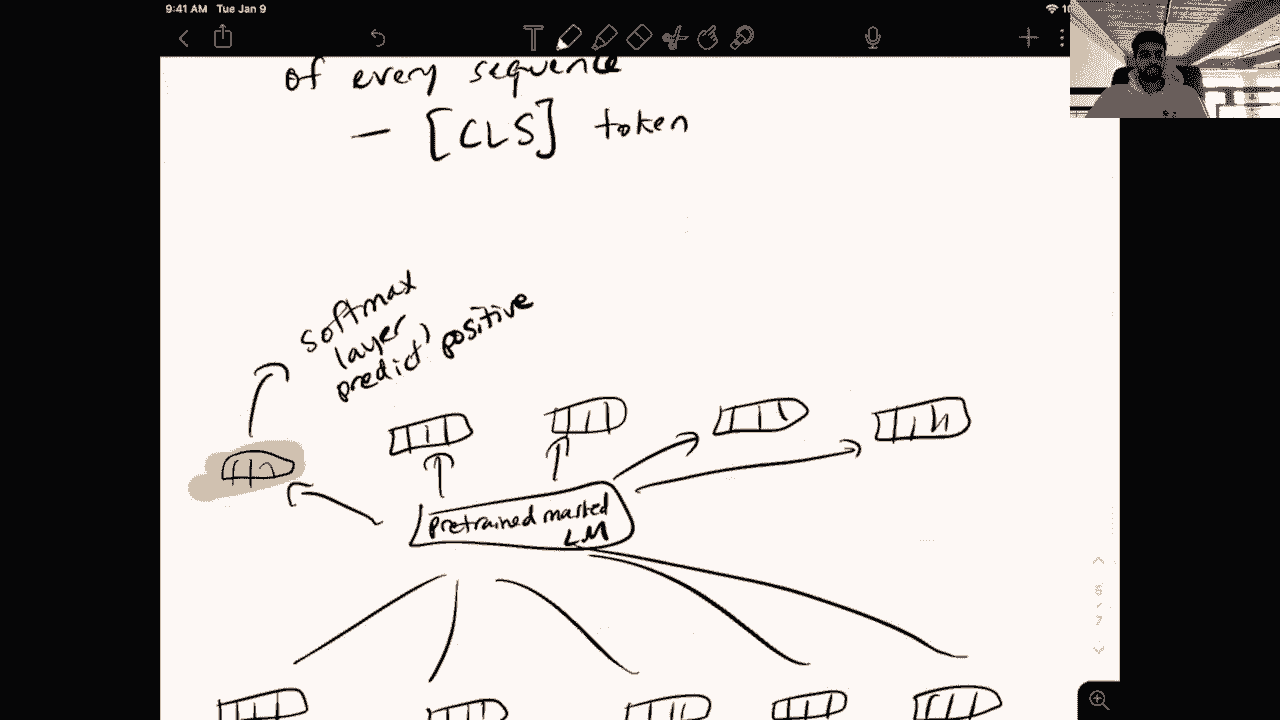 9:41 AM Tue Jan 9
of every sequence
— [CLS] token
softmax
layer,
predict positive
pretrained masked
LM
5
/
7